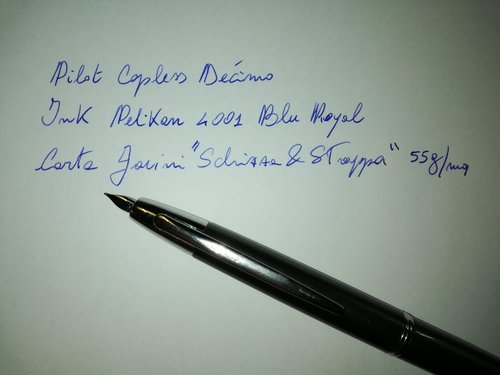 Pilot Capless Decimo
Ink Pelikan 4001 Blu Royal
Carta Favini "Schizza & Strappa" 55g/mq